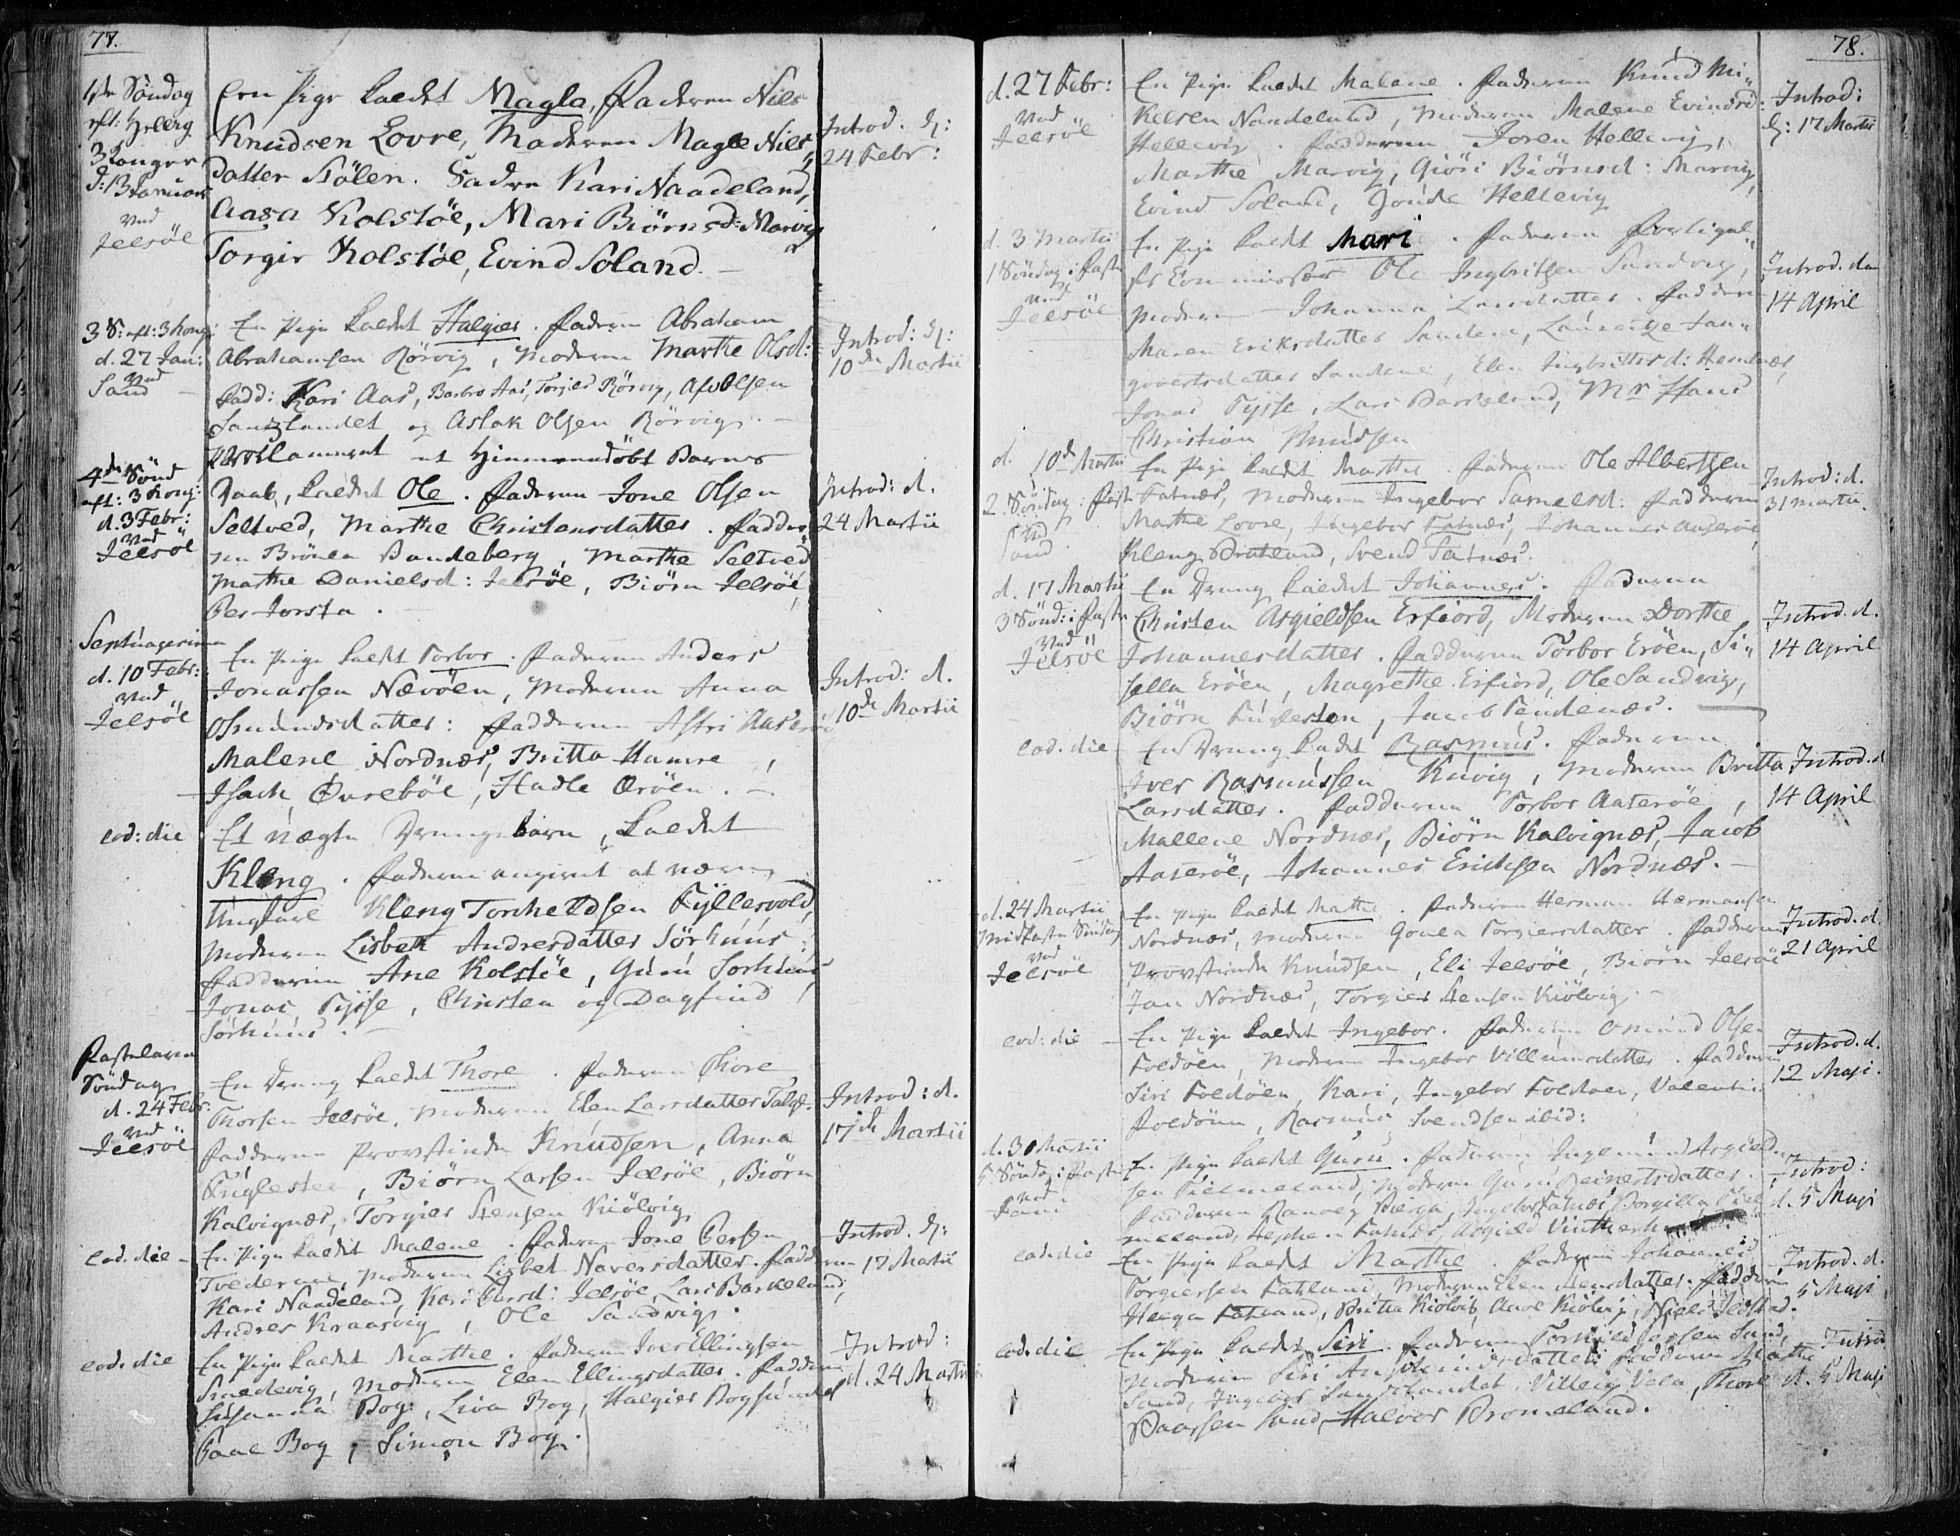 77.
1ste Söndag
eft: Hellig
3 Konger
d: 13 Januar
ved
Jelsöe
Een Pige kaldt Magla, Faderen Nils
Knudsen Lovre, Moderen Magle Nils
datter Stölen. Fadre Kari Naadeland,
Aasa Kolstöe, Mari Biörnsd: Marvig
Torgir Kolstöe, Evind Soland.
Introd. d:
24 Febr:
3 S: eft: 3 Kong:
d. 27 Jan:
ved
Sand
En Pige kaldt Halgier. Faderen Abraham
Abrahamsen Rörvig, Moderen Marthe Olsd:
Fadd: Kari Aas, Barbro Aas, Torgier Rörvig, Olsen
Sandslandet og Aslak Olsen Rörvig.
Introd: d:
10de Martii
4de Sönd
eft: 3 Kong:
d. 3 Febr:
ved
Jelsöe
Proclameret et Hiemmedöbt Barns
Daab, kaldet Ole. Faderen Jone Olsen
Seltved, Marthe Christensdatter. Fadder
ne Brönla Bandeberg, Marthe Seltved
Mathe Danielsd: Jelsöe, Biörn Jelsöe,
Per Jorsta.
Introd: d.
24 Martii
Septuagesima
d. 10 Febr:
ved
Jelsöe
En Pige kaldt Torbor. Faderen Anders
Jonassen Nævöen, Moderen Anna
Osmundsdatter: Fadderne Astri Aaseröe
Malene Nordnæs, Britta Hamre,
Isach Övreböe, Hadle Eröen.
Introd: d.
10de Martii
eod: die
Et uægte Drengebarn, kaldet
Kleng. Faderen angivet at være
Ungkarl Kleng Torkeldsen Tyllesvold,
Moderen Lisbeth Andresdatter Sörhuus:
Fadderne Ane Kolstöe, Guru Sörhuus
Jonas Fysse, Christen og Dagfind
Sörhuus.
Fastelavns
Söndag
d. 24 Febr.
ved
Jelsöe
En Dreng kaldt Thore. Faderen Thore
Thorsen Jelsöe, Moderen Elen Larsdatter Talge.
Fadderne Provstinde Knudsen, Anna
Fuglesteen, Biörn Larsen Jelsöe, Biörn
Kalvignæs, Torgier Stensen Kiölvig
Introd: d.
17de Martii
eod. die
En Pige kaldet Malene. Faderen Jone Persen
Tvederne, Moderen Lisbet Naversdatter. Fadderne
Kari Naadeland, Kari Larsd: Jelsöe, Lars Barkeland,
Andres Kraasvig, Ole Sandvig.
Introd. d:
17 Martii
eod: die
En Pige kaldet Marthe. Faderen Iver Ellingsen
Saaldevig, Moderen Elen Ellingsdatter. Fadderne
Susanna Bog, Liva Bog, Halgier Bogsund
Paal Bog, Simon Bog.
Introd:
d. 24 Martii
78.
d. 27 Febr:
ved
Jelsöe
En Pige kaldet Malene. Faderen Knud Mi-
kelsen Nandelund, Moderen Malene Evindsd:
Hellevig. Fadderne Joren Hellevig,
Marthe Marvig, Giöri Biörnsd: Marvig
Evind Soland, Gonde Hellevig
Introd:
d: 17 Martii
d. 3 Martii
1 Söndag i Faste
ved
Jelsöe
En Pige kaldt Mari. Faderen Forligel-
ses Commissær Ole Ingbritsen Sandvig,
Moderen Johanna Larsdatter. Fadderne
Maren Eriksdatter Sandene, Laurentze Jan-
gvertsdatter Sandene, Elen Ingbrittsd: Hemnæs,
Jonas Fysse, Lars Barkeland, Mr Hans
Christian Knudsen
Introd. den
14 April
d. 10de Martii
2. Söndag i Fast
ved
Sand
En Pige kaldt Marthe. Faderen Ole Albertsen
Fatnæs, Moderen Ingebor Samelsd: Fadderne
Marthe Lovre, Ingebor Fatnæs, Johannes Aaseröe,
Kleng Bratland, Svend Fatnæs.
Introd: d.
31 Martii.
d. 17 Martii
3 Sönd: i Faste
ved
Jelsöe
En Dreng kaldet Johannes. Faderen
Christen Asgieldsen Erfiord, Moderen Dorthe
Johannesdatter. Fadderne Torbor Eröen, Si-
sella Eröen, Magrethe Erfiord, Ole Sandvig,
Biörn Fuglesteen, Jacob Tendenæs.
Introd. d.
14 April
eod. die
En Dreng kaldet Rasmus. Faderen
Iver Rasmussen Kuvig, Moderen Britta
Larsdatter. Fadderne Torbor Aaseröe,
Mallene Nordnæs, Biörn Kalvignæs, Jacob
Aaseröe, Johannes Erichsen Nordnæs.
Introd. d
14 April
d. 24 Martii
Midfaste Söndag
ved
Jelsöe
En Pige kaldet Mathe. Faderen Herman Hermansen
Nordnæs, Moderen Gonla Torgiersdatter. Fadderne
Provstinde Knudsen, Eli Jelsöe, Biörn Jelsöe
Jan Nordnæs, Torgier Stensen Kiölvig.
Introd. d.
21 April
eod: die
En Pige kaldet Ingebor. Faderen Osmund Olsen
Foldöen, Moderen Ingebor Villumsdatter. Fadderne
Siri Foldöen, Kari, Ingebor Foldöen, Valentin
Foldöen, Rasmus Svendsen ibid:
Introd. d.
12 Maji.
d. 30 Martii
5 Söndag i Faste
ved
Sand
En Pige kaldet Guru. Faderen Ingemund Asgield-
sen Fiellmeland, Moderen Guru Reinertsdatter.
Fadderne Ranveg Berge, Ingebor Fatnæs, Borgilla
meland, Stephen Fatnæs, Asgield Vintherh
Introd:
d. 5 Maji
eod: die
En Pige kaldt Marthe. Faderen Johannes
Torgersen Fatland, Moderen Elen Hansdatter. Fadderne
Helga Fatland, Britta Kiölvig, Aave Kiölvig, Niels Jelstad.
Introd. d.
5 Maji
eod. die
En Pige kaldet Siri. Faderen Torkild Sand,
Moderen Siri Ansteensdatter. Fadderne Marthe
Sand, Ingebor Sandslandet, Villeig Vela, Thore
Baarsen Sand, Halvor Bromeland.
Introd
d. 5 Maji